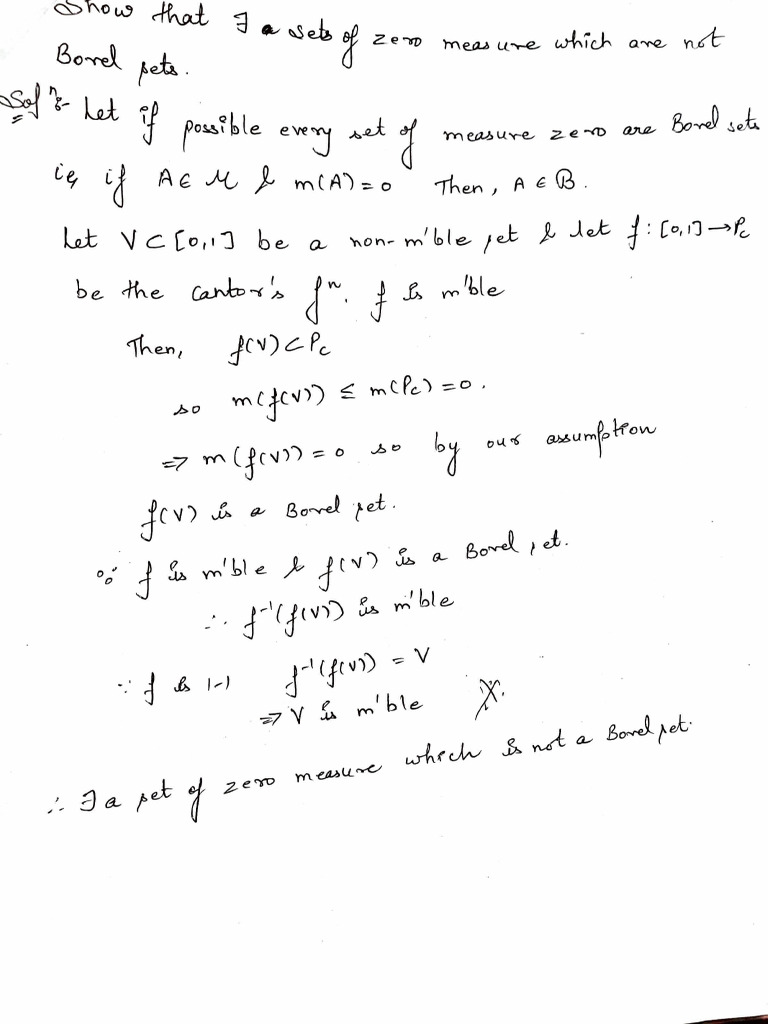 Show that ∃ a sets of zero measure which are not
Borel sets.
Solⁿ:- Let if possible every set of measure zero are Borel sets
ie, if A ∈ M & m(A)=0 Then, A ∈ B.
Let V ⊂ [0,1] be a non-m'ble set & let f: [0,1] → Pc
be the cantor's fⁿ. f is m'ble
Then, f(V) ⊂ Pc
so m(f(V)) ≤ m(Pc) = 0.
⇒ m(f(V)) = 0 so by our assumption
f(V) is a Borel set.
∵ f is m'ble & f(V) is a Borel set.
∴ f⁻¹(f(V)) is m'ble
∵ f is 1-1 f⁻¹(f(V)) = V
⇒ V is m'ble X.
∴ ∃ a set of zero measure which is not a Borel set.